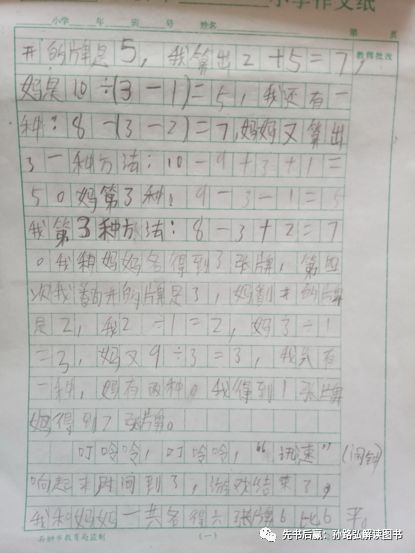 小学作文纸
小学 年 班 号 姓名 第 页
开的牌是5，我算出2+5=7， 教师批改
妈是10÷(3-1)=5，我还有一
种：8-(3-2)=7，妈妈又算出
3一种方法：10-9+3+1=
5。妈第3种：9-3-1=5
我第3种方法：8-3+2=7
。我和妈妈各得到3张牌，第四
次我翻开的牌是3，妈翻开的牌
是2，我2÷1=2，妈3÷1
=3，妈又9÷3=3，我只有
一种，妈有两种。我得到1张牌
妈得到2张牌。
叮呤呤，叮呤呤，“迅速”(闹钟)
响起来，时间到了，游戏结束了，
我和妈妈一共各得六张牌6比6平，
教育局监制 (一)
先书后赢：孙路弘解读图书